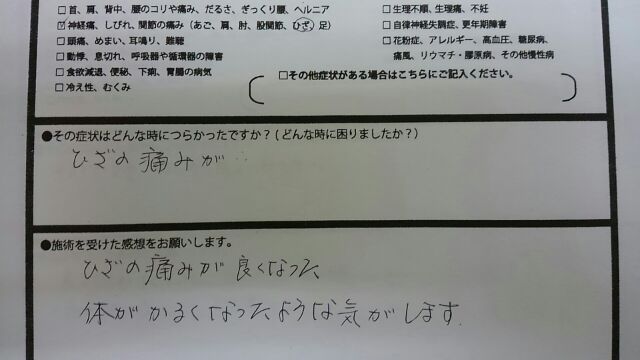 □首、肩、背中、腰のコリや痛み、だるさ、ぎっくり腰、ヘルニア
☑神経痛、しびれ、関節の痛み（あご、肩、肘、股関節、ひざ、足）
□頭痛、めまい、耳鳴り、難聴
□動悸、息切れ、呼吸器や循環器の障害
□食欲減退、便秘、下痢、胃腸の病気
□冷え性、むくみ
□生理不順、生理痛、不妊
□自律神経失調症、更年期障害
□花粉症、アレルギー、高血圧、糖尿病、
痛風、リウマチ・膠原病、その他慢性病
□その他症状がある場合はこちらにご記入ください。
●その症状はどんな時につらかったですか？（どんな時に困りましたか？）
ひざの痛みが‥
●施術を受けた感想をお願いします。
ひざの痛みが良くなった
体がかるくなったような気がします.